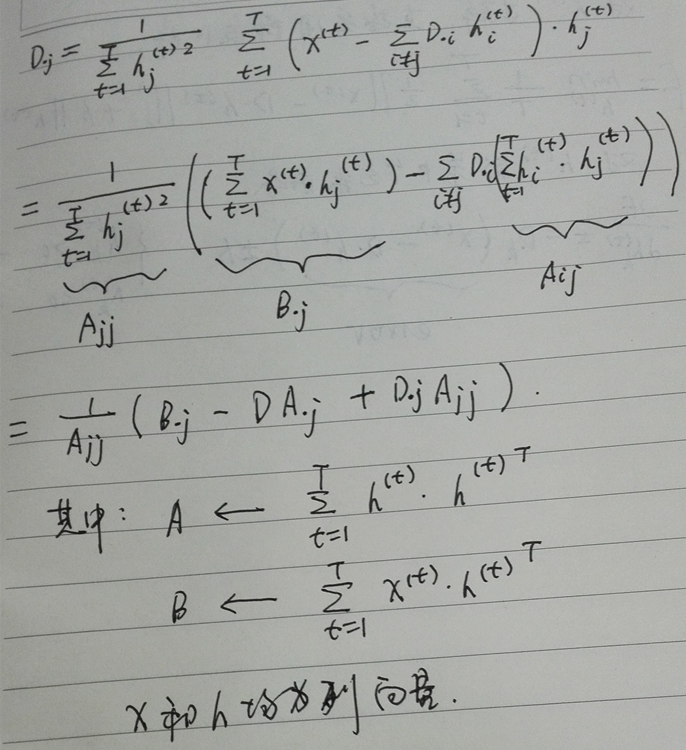 D.j = 1 / (Σ_{t=1}^{T} h_j^{(t)2}) Σ_{t=1}^{T} (x^{(t)} - Σ_{i≠j} D.i h_i^{(t)}) · h_j^{(t)}
= 1 / (Σ_{t=1}^{T} h_j^{(t)2}) ((Σ_{t=1}^{T} x^{(t)} · h_j^{(t)}) - Σ_{i≠j} D.i (Σ_{t=1}^{T} h_i^{(t)} · h_j^{(t)}))
Ajj B.j Aij
= 1 / Ajj (B.j - D A.j + D.j Ajj) .
其中: A ← Σ_{t=1}^{T} h^{(t)} · h^{(t)T}
B ← Σ_{t=1}^{T} x^{(t)} · h^{(t)T}
x 和 h 均为列向量.